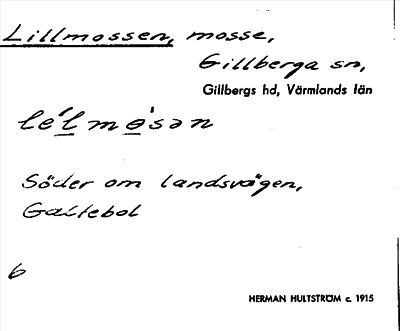 Lillmossen, mosse,
Gillberga sn,
Gillbergs hd, Värmlands län
Söder om landsvägen,
6
HERMAN HULTSTRÖM c. 1915